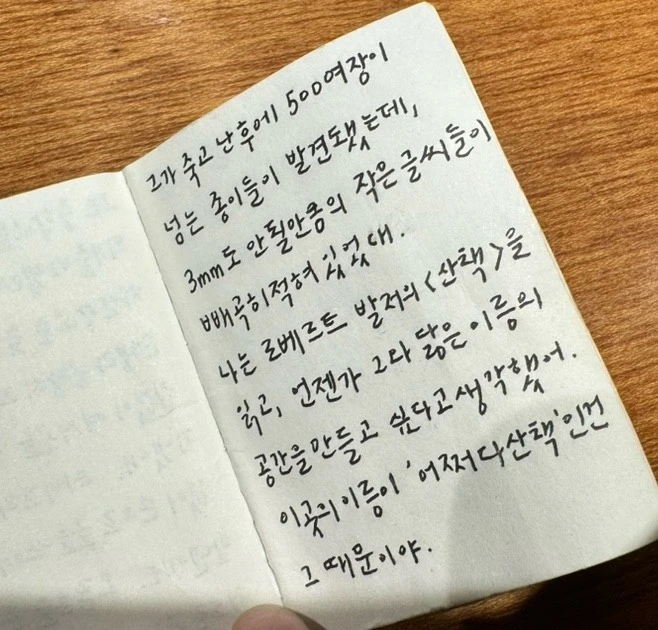 그가 죽고 난 후에 500여장이
넘는 종이들이 발견됐는데,
3mm도 안될만큼의 작은 글씨들이
빼곡히 적혀 있었대.
나는 로베르트 발저의 <산책>을
읽고, 언젠가 그와 닮은 이름의
공간을 만들고 싶다고 생각했어.
이곳의 이름이 '어쩌다산책'인건
그 때문이야.